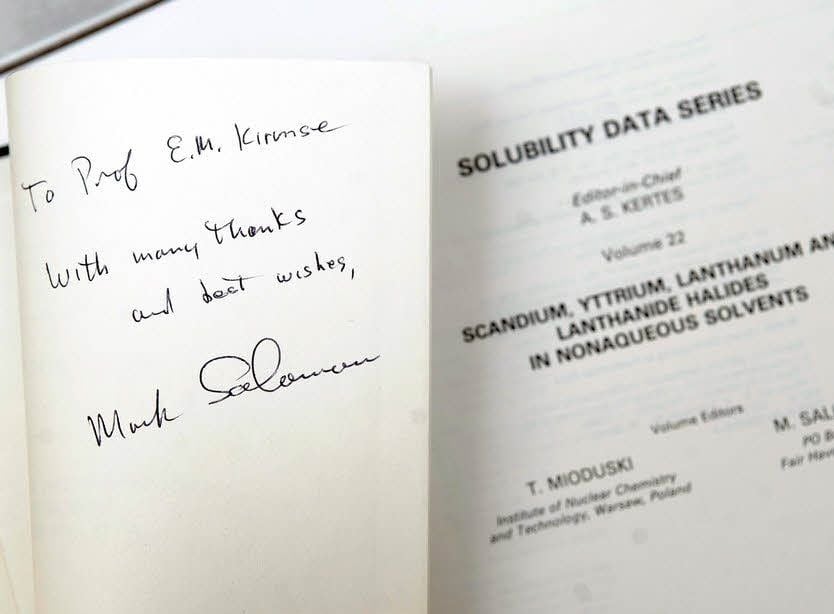 To Prof E.M. Kirmse
With many thanks
and best wishes,
Mark Salomon
SOLUBILITY DATA SERIES
Editor-in-Chief
A. S. KERTES
Volume 22
SCANDIUM, YTTRIUM, LANTHANUM AN
LANTHANIDE HALIDES
IN NONAQUEOUS SOLVENTS
Volume Editors
T. MIODUSKI
Institute of Nuclear Chemistry
and Technology, Warsaw, Poland
M. SAL
PO B
Fair Hav